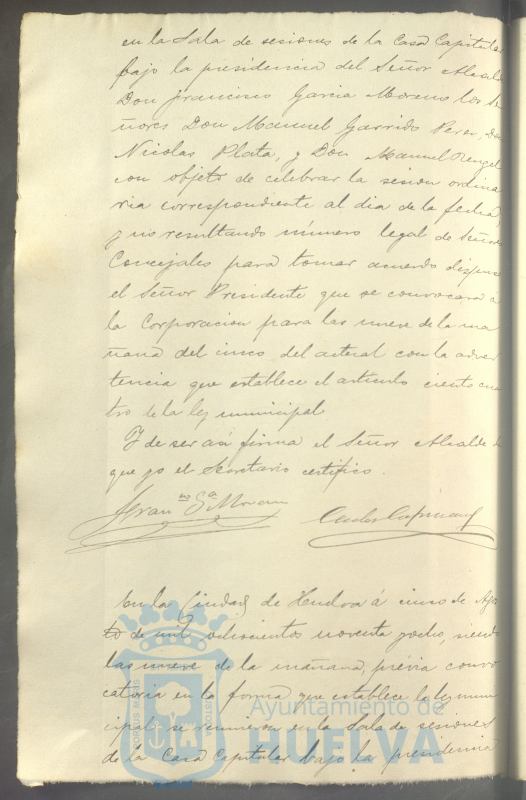 en la Sala de sesiones de la Casa Capitular
bajo la presidencia del Señor Alcalde
Don Francisco Garcia Moreno los Se
ñores Don Manuel Garrido Perez, Don
Nicolas Plata, y Don Manuel Rengel
con objeto de celebrar la sesion ordina
ria correspondiente al dia de la fecha,
y no resultando número legal de Señores
Concejales para tomar acuerdo dispuso
el Señor Presidente que se convocara a
la Corporacion para las nueve de la ma
ñana del cinco del actual con la adver
tencia que establece el articulo ciento cua
tro de la ley municipal.
Y de ser asi firma el Señor Alcalde de
que yo el Secretario certifico.
Fran.co G.a Moreno
en la Ciudad de Huelva á cinco de Agos
to de mil ochocientos noventa y ocho, siendo
las nueve de la mañana, prévia convo
catoria en la forma que establece la ley mun
icipal se reunieron en la Sala de sesiones
de la Casa Capitular bajo la presidencia
Ayuntamiento de
HUELVA